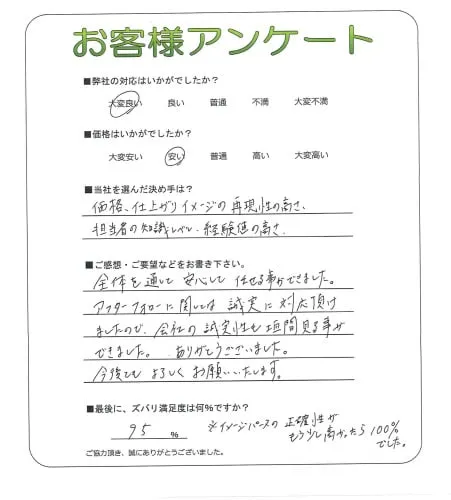 お客様アンケート
■弊社の対応はいかがでしたか？
大変良い 良い 普通 不満 大変不満
■価格はいかがでしたか？
大変安い 安い 普通 高い 大変高い
■当社を選んだ決め手は？
価格、仕上がりイメージの再現性の高さ、
担当者の知識レベル・経験値の高さ
■ご感想・ご要望などをお書き下さい。
全体を通して安心して任せる事ができました。
アフターフォローに関しては誠実に対応頂け
ましたので、会社の誠実性も垣間見る事が
できました。ありがとうございました。
今後ともよろしくお願いいたします。
■最後に、ズバリ満足度は何%ですか？
95 % ※イメージパースの正確性が
もう少し高かったら100%
でした。
ご協力頂き、誠にありがとうございました。